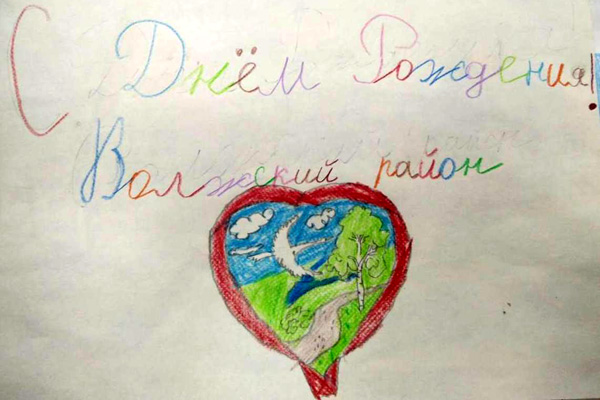 С Днём Рождения!
Волжский район